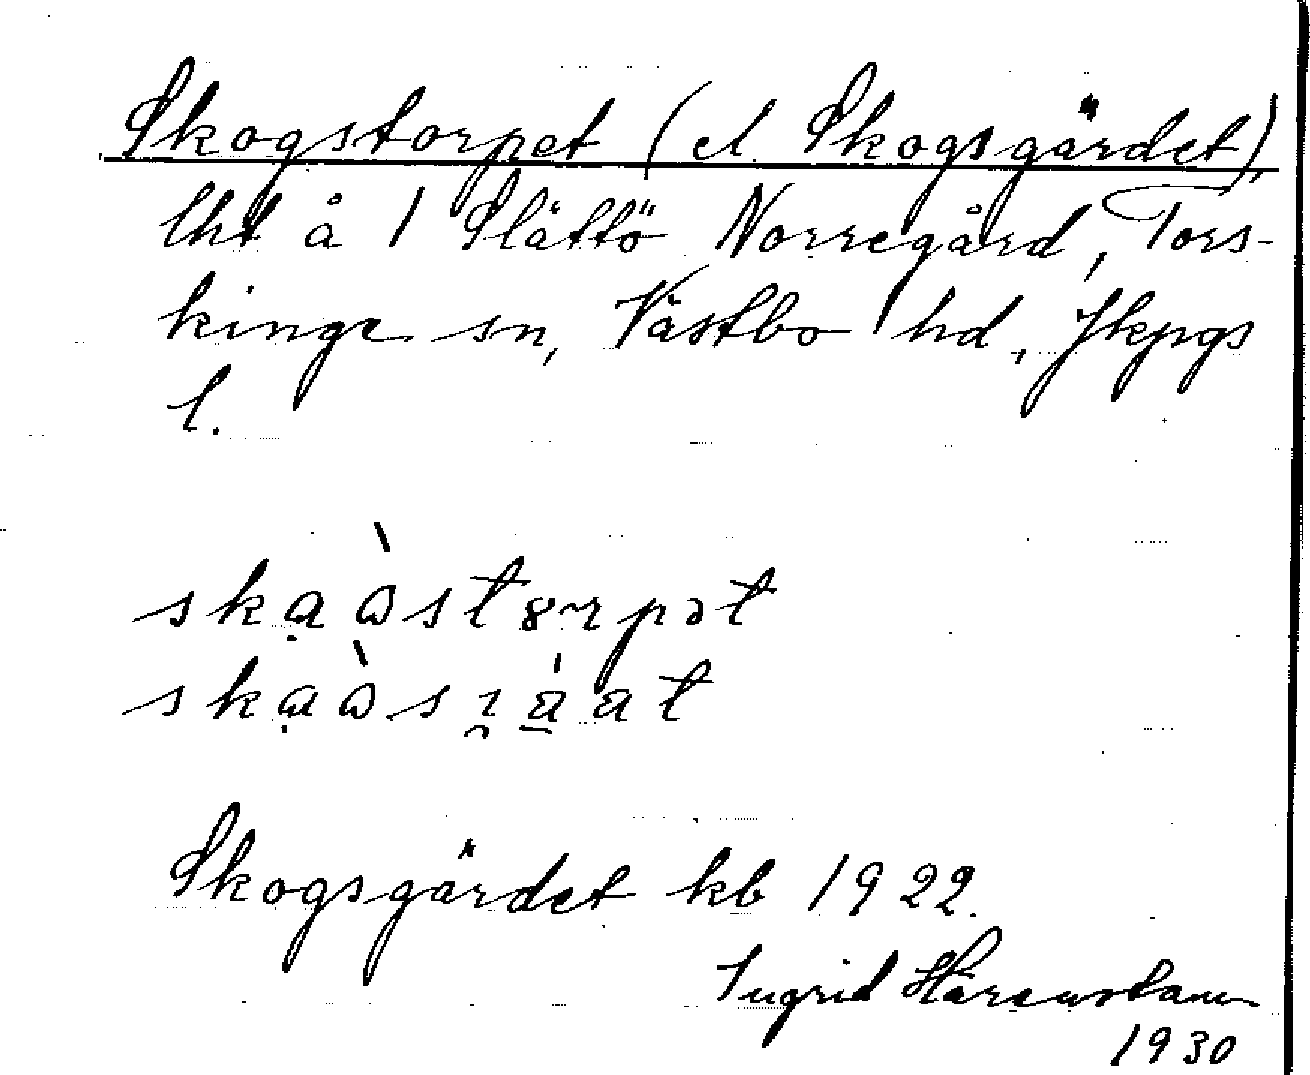 Skogstorpet (el Skogsgärdet)
lht å 1 Slättö Norregård, Tors-
kinge sn, Västbo hd, Jkpgs
l.
Skogsgärdet kb 1922.
Ingrid Härenstam
1930